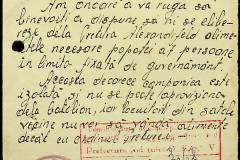 Am onoare a vă ruga să
binevoiți a dispune să ni se elibe-
reze dela Pretura Alexandrfeld alimen-
tele necesare popotei a 7 persoane
în limita fixată de guvernământ.
Aceasta deoarece compania este
izolată și nu se poate aproviziona
dela batalion, iar locuitorii din satele
vecine nu vor să vândă alimente
decât cu ordinul preturei.